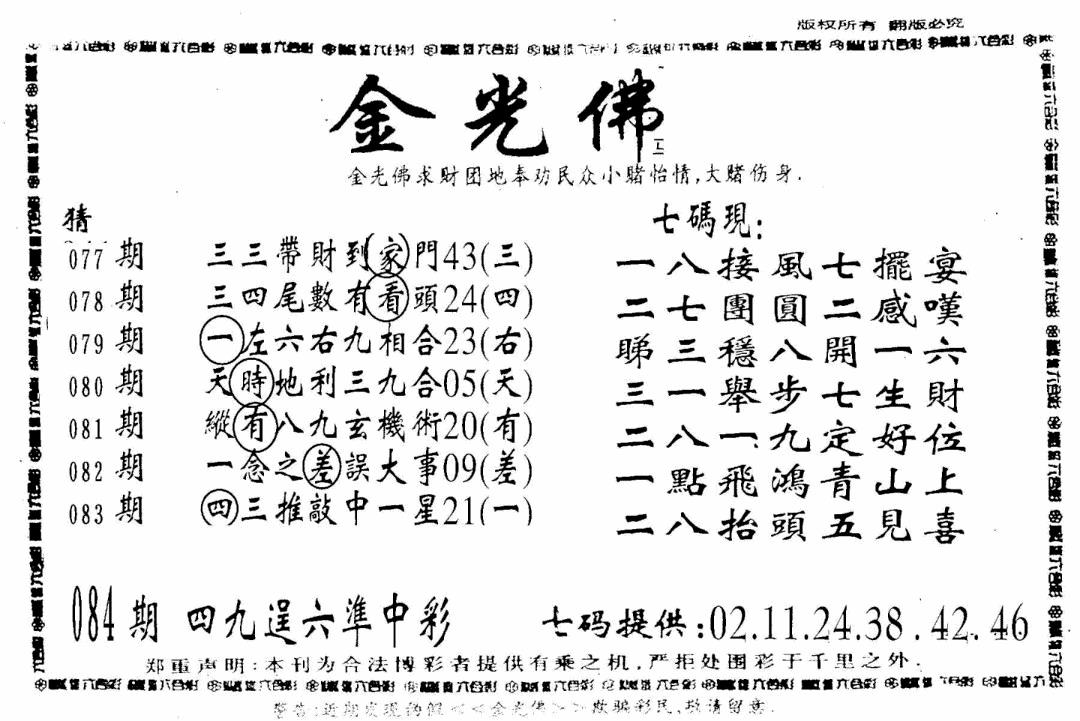 版权所有 翻版必究
金光佛
金光佛求财团地奉劝民众小赌怡情,大赌伤身.
猜
077期 三三帶財到家門43(三)
078期 三四尾數有看頭24(四)
079期 一左六右九相合23(右)
080期 天時地利三九合05(天)
081期 縱有八九玄機術20(有)
082期 一念之差誤大事09(差)
083期 四三推敲中一星21(一)
七碼現:
一八接風七擺宴
二七團圓二感嘆
睇三穩八開一六
三一舉步七生財
二八一九定好位
一點飛鴻青山上
二八抬頭五見喜
084期 四九逞六準中彩
七码提供:02.11.24.38.42.46
郑重声明:本刊为合法博彩者提供有乘之机,严拒处围彩于千里之外.
警告:近期发现的假<<金光佛>>欺骗彩民,敬请留意.